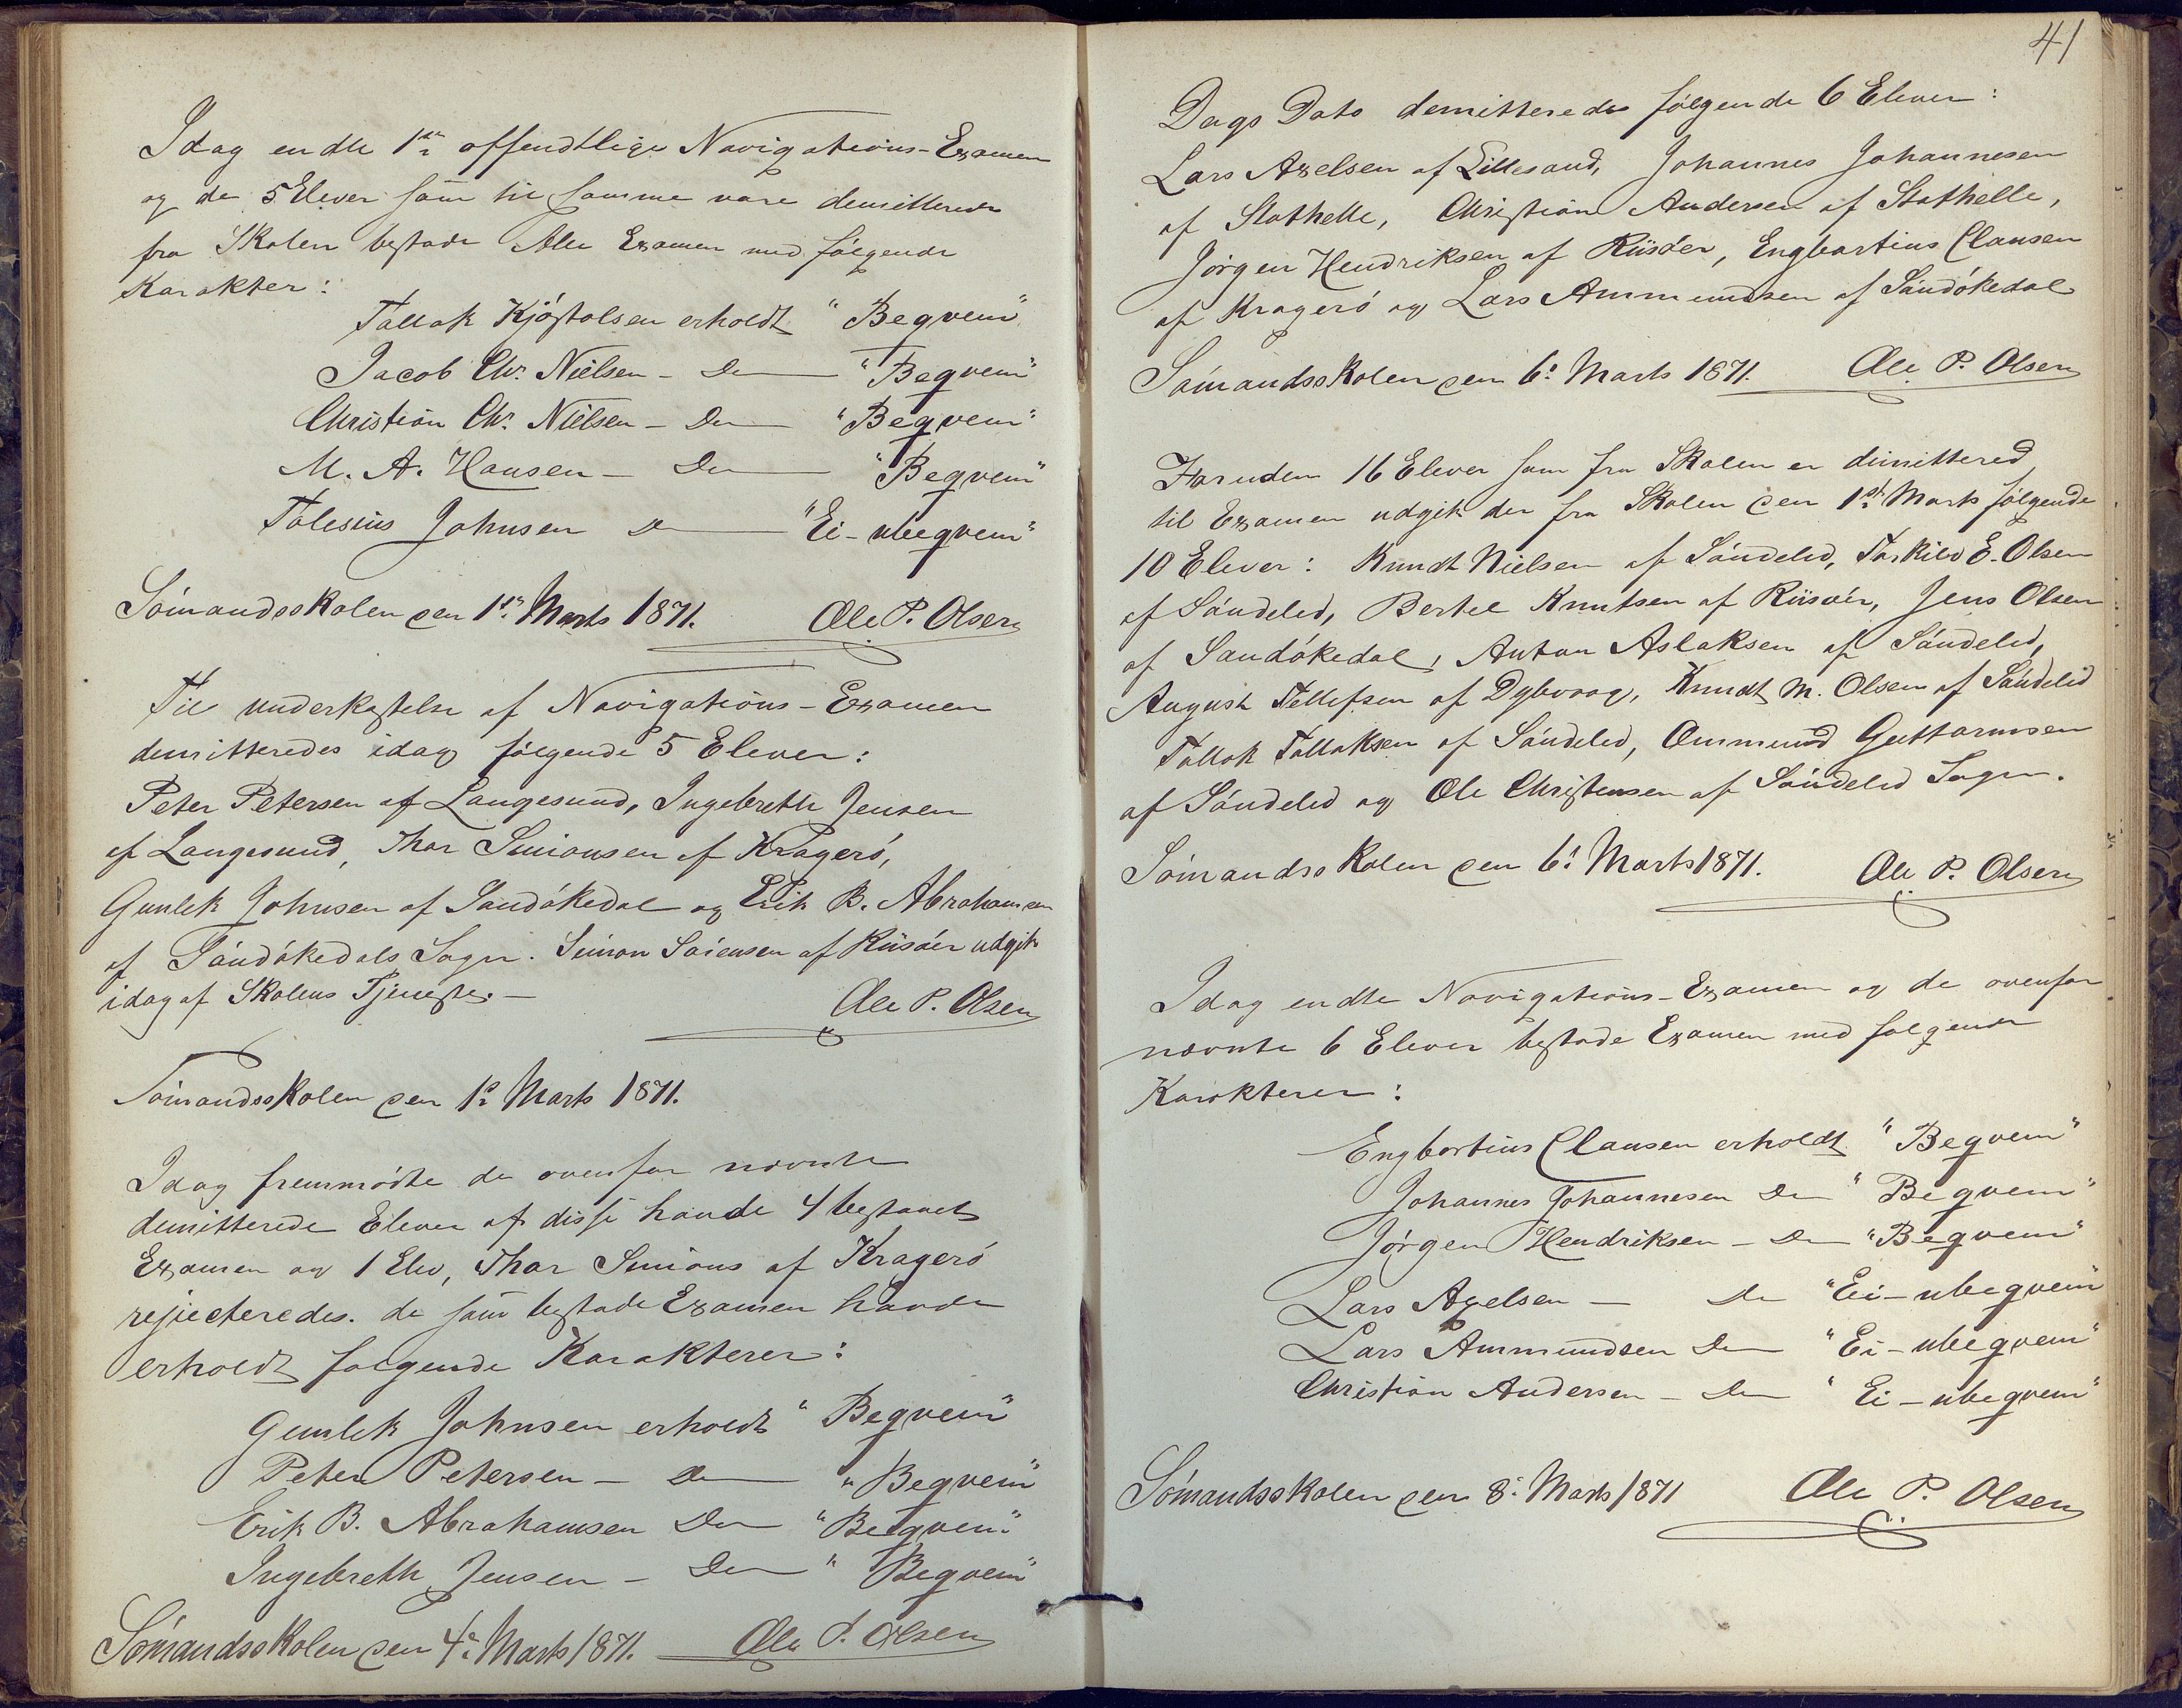 Idag endte 1ste offendtlige Navigations-Examen
og de 5 Elever som til samme vare demitterede
fra Skolen bestode Alle Examen med følgende
Karakter:
Tallak Kjøstolsen erholdt "Begvem"
Jacob Chr. Nielsen - Do "Begvem"
Christian Chr. Nielsen - Do "Begvem"
M. A. Hansen - Do "Begvem"
Tolesius Johnsen Do "Ei-ubegvem"
Sömandsskolen den 1ste Marts 1871. Ole P. Olsen
Til underkastelse af Navigations-Examen
demitteredes idag følgende 5 Elever:
Peter Petersen af Langesund, Ingebreth Jensen
af Langesund, Thor Simonsen af Kragerö,
Gunlek Johnsen af Sandökedal og Erik B. Abrahamsen
af Sandökedals Sogn. Simon Sörensen af Riisöer udgik
idag af Skolens Tjeneste.-
Ole P. Olsen
Sömandsskolen den 1ste Marts 1871.
Idag fremmödte de ovenfor nævnte
demitterede Elever af disse havde 4 bestaaet
Examen og 1 Elev, Thor Simons af Kragerö
rejicteredes. de som bestode Examen havde
erholdt følgende Karakterer:
Gunlek Johnsen erholdt "Begvem"
Peter Petersen - Do "Begvem"
Erik B. Abrahamsen Do "Begvem"
Ingebreth Jensen - Do "Begvem"
Sömandsskolen den 4de Marts 1871. Ole P. Olsen
41
Dags Dato demitteredes følgende 6 Elever:
Lars Axelsen af Lillesand, Johannes Johannesen
af Stathelle, Christian Andersen af Stathelle,
Jörgen Hendriksen af Riisöer, Engbartius Clausen
af Kragerö og Lars Ammundsen af Sandökedal
Sömandsskolen den 6te Marts 1871. Ole P. Olsen
Foruden 16 Elever som fra Skolen er dimittered
til Examen udgik der fra Skolen den 1ste Marts følgende
10 Elever: Knudt Nielsen af Söndeled, Torkild E. Olsen
af Söndeled, Bertel Knutsen af Riisöer, Jens Olsen
af Sandökedal, Anton Aslaksen af Söndeled,
August Tellefsen af Dybvaag, Knudt M. Olsen af Söndeled
Tallak Tallaksen af Söndeled, Ommund Guttormsen
af Söndeled og Ole Christensen af Söndeled Sogn.
Sömandsskolen den 6te Marts 1871. Ole P. Olsen
Idag endte Navigations-Examen og de ovenfor
nævnte 6 Elever bestode Examen med følgende
Karakterer:
Engbartius Clausen erholdt "Begvem"
Johannes Johannesen Do "Begvem"
Jörgen Hendriksen - Do "Begvem"
Lars Axelsen - Do "Ei-ubegvem"
Lars Ammundsen Do "Ei-ubegvem"
Christian Andersen - Do "Ei-ubegvem"
Sömandsskolen den 8de Marts 1871 Ole P. Olsen